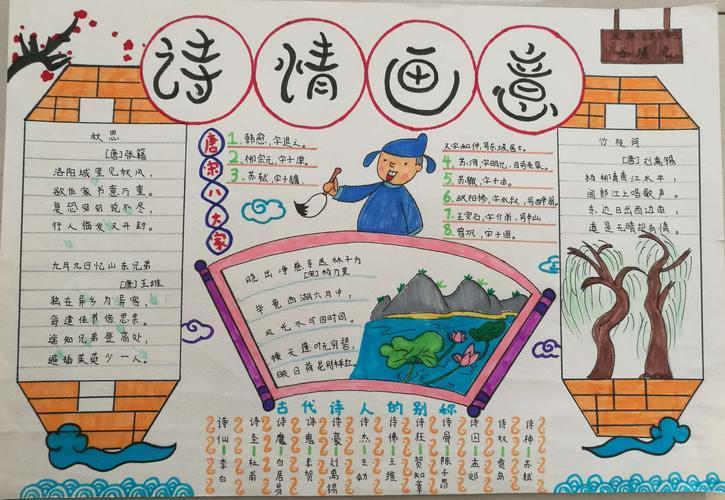 诗情画意
秋思
[唐]张籍
洛阳城里见秋风，
欲作家书意万重。
复恐匆匆说不尽，
行人临发又开封。
九月九日忆山东兄弟
[唐]王维
独在异乡为异客，
每逢佳节倍思亲。
遥知兄弟登高处，
遍插茱萸少一人。
唐宋八大家
1.韩愈，字退之。
2.柳宗元，字子厚。
3.苏轼，字子瞻，
又字和仲，号东坡居士。
4.苏洵，字明允，自号老泉。
5.苏辙，字子由。
6.欧阳修，字永叔，号醉翁。
7.王安石，字介甫，号半山。
8.曾巩，字子固。
晓出净慈寺送林子方
[宋]杨万里
毕竟西湖六月中，
风光不与四时同。
接天莲叶无穷碧，
映日荷花别样红。
竹枝词
[唐]刘禹锡
杨柳青青江水平，
闻郎江上唱歌声。
东边日出西边雨，
道是无晴却有情。
古代诗人的别称
诗仙—李白
诗圣—杜甫
诗魔—白居易
诗鬼—李贺
诗豪—刘禹锡
诗杰—王勃
诗佛—王维
诗狂—贺知章
诗骨—陈子昂
诗囚—孟郊
诗奴—贾岛
诗神—苏轼